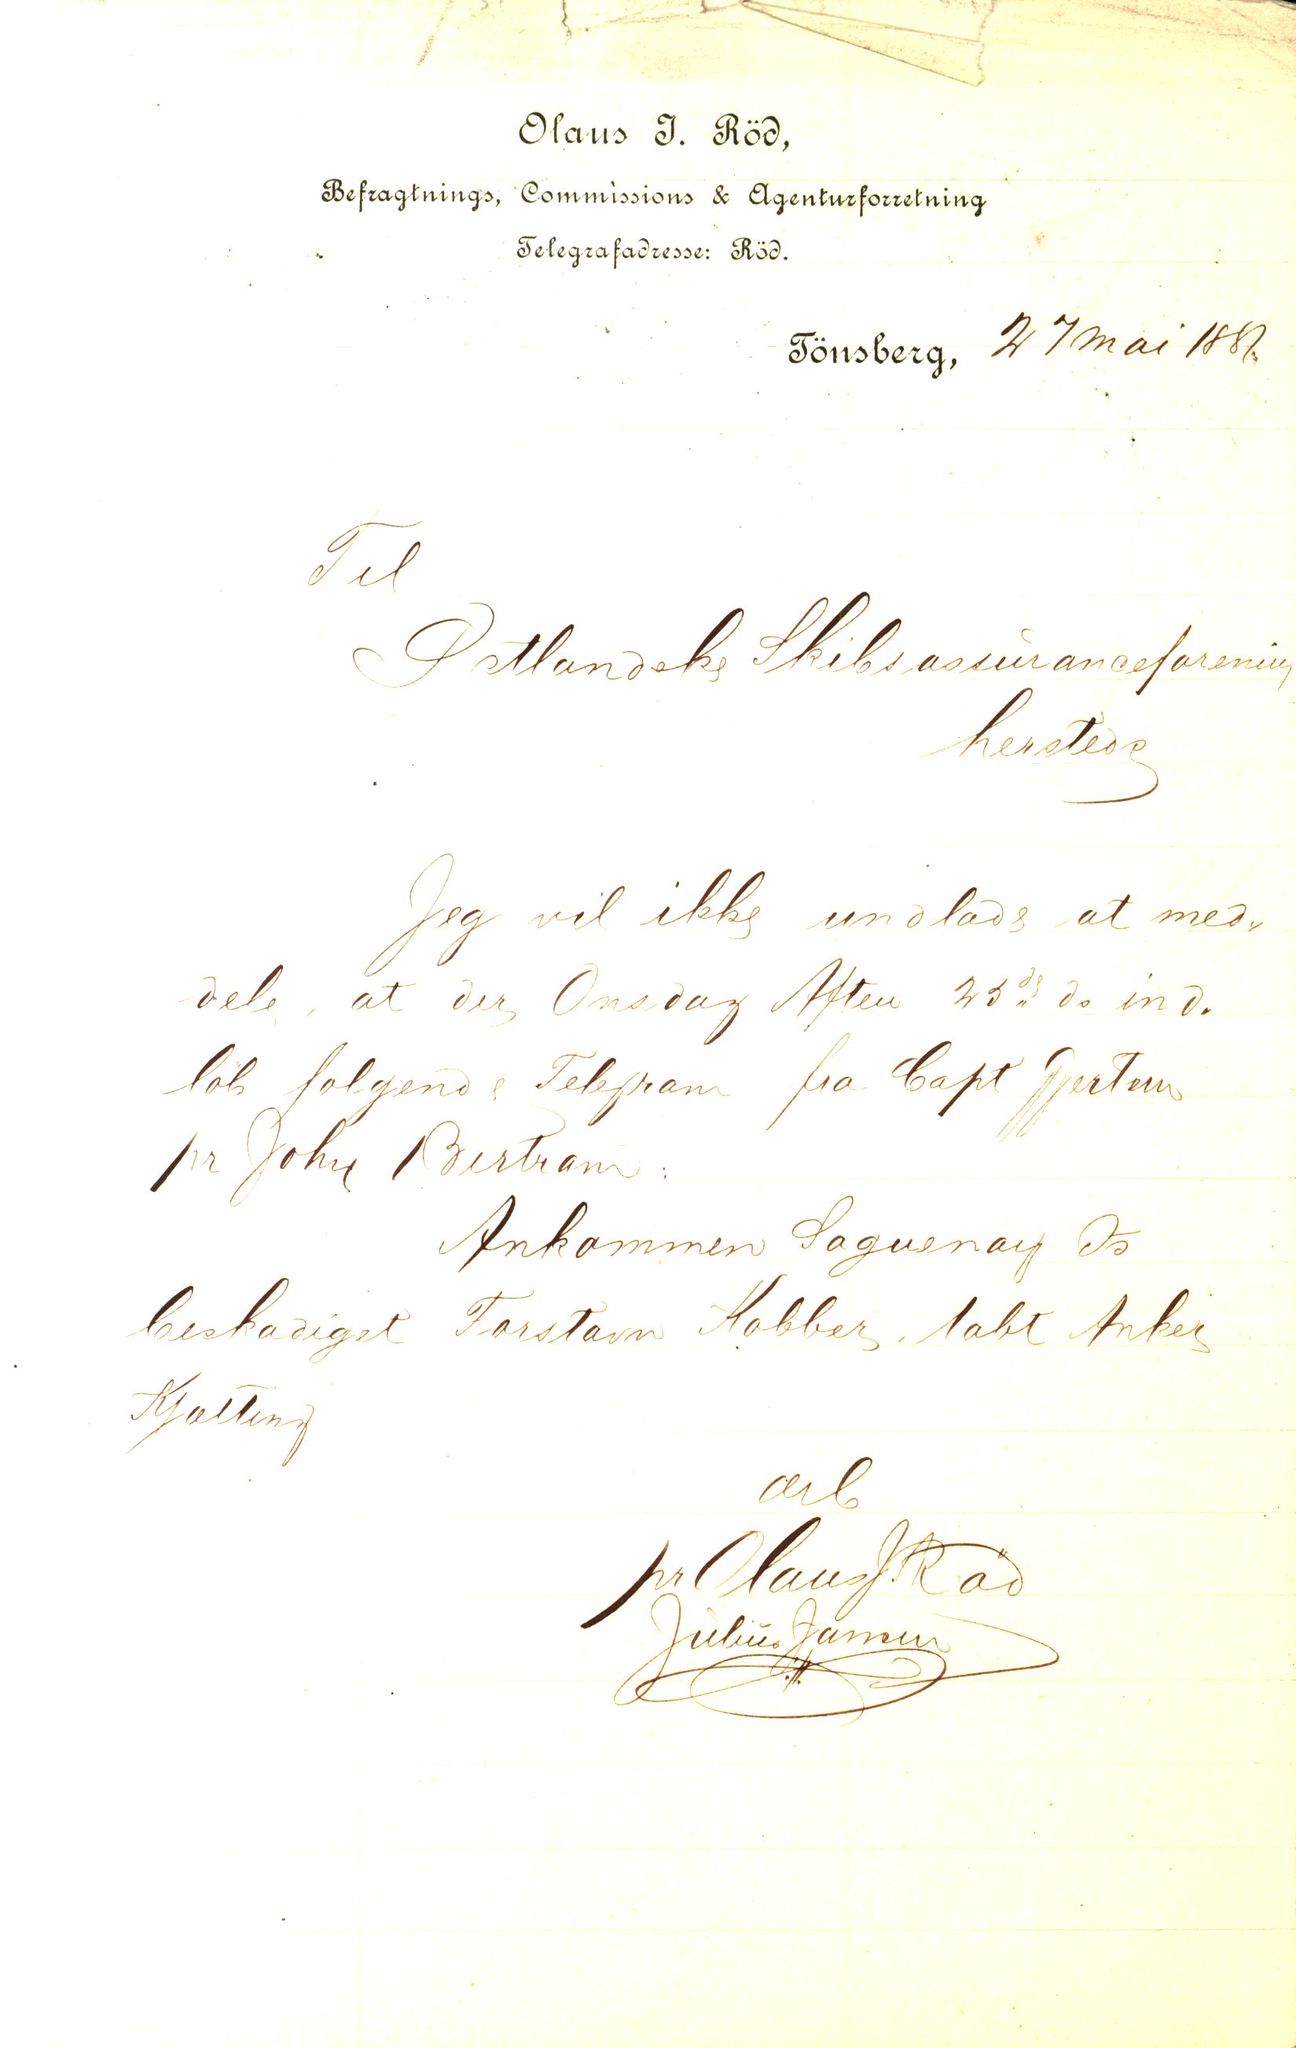 Olaus J. Röd,
Befragtnings, Commissions & Agenturforretning
Telegrafadresse: Röd.
Tönsberg, 27 Mai 188
Til
Østlandske Skibsassuranceforening
hersteds
Jeg vil ikke undlade at med-
dele, at der Onsdag Aften 25de ds ind-
løb følgende Telegram fra Capt Gjertsen
pr John Bertram:
Ankommen Saguenay Is
beskadiget Forstavn Kobber, tabt Anker
Kjætting
ærb
pr Olaus J. Röd
Julius Jansen